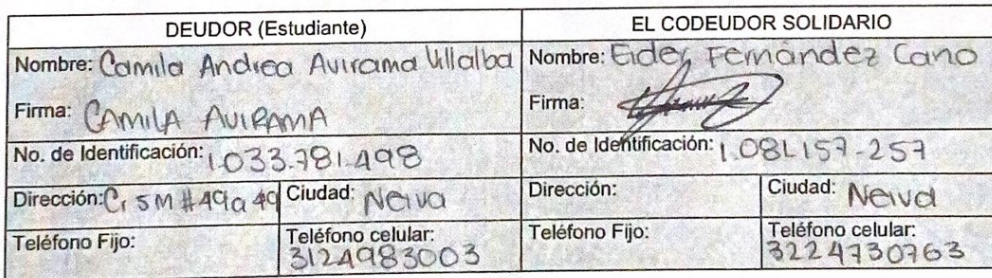 DEUDOR (Estudiante)
EL CODEUDOR SOLIDARIO
Nombre: Camila Andrea Avirama Villalba
Nombre: Eider Fernández Cano
Firma: CAMILA AVIRAMA
Firma:
No. de Identificación: 1.033.781.498
No. de Identificación: 1.081.157-257
Dirección: Cr 5M #49a 49
Ciudad: Neiva
Dirección:
Ciudad: Neiva
Teléfono Fijo:
Teléfono celular:
3124983003
Teléfono Fijo:
Teléfono celular:
3224730763